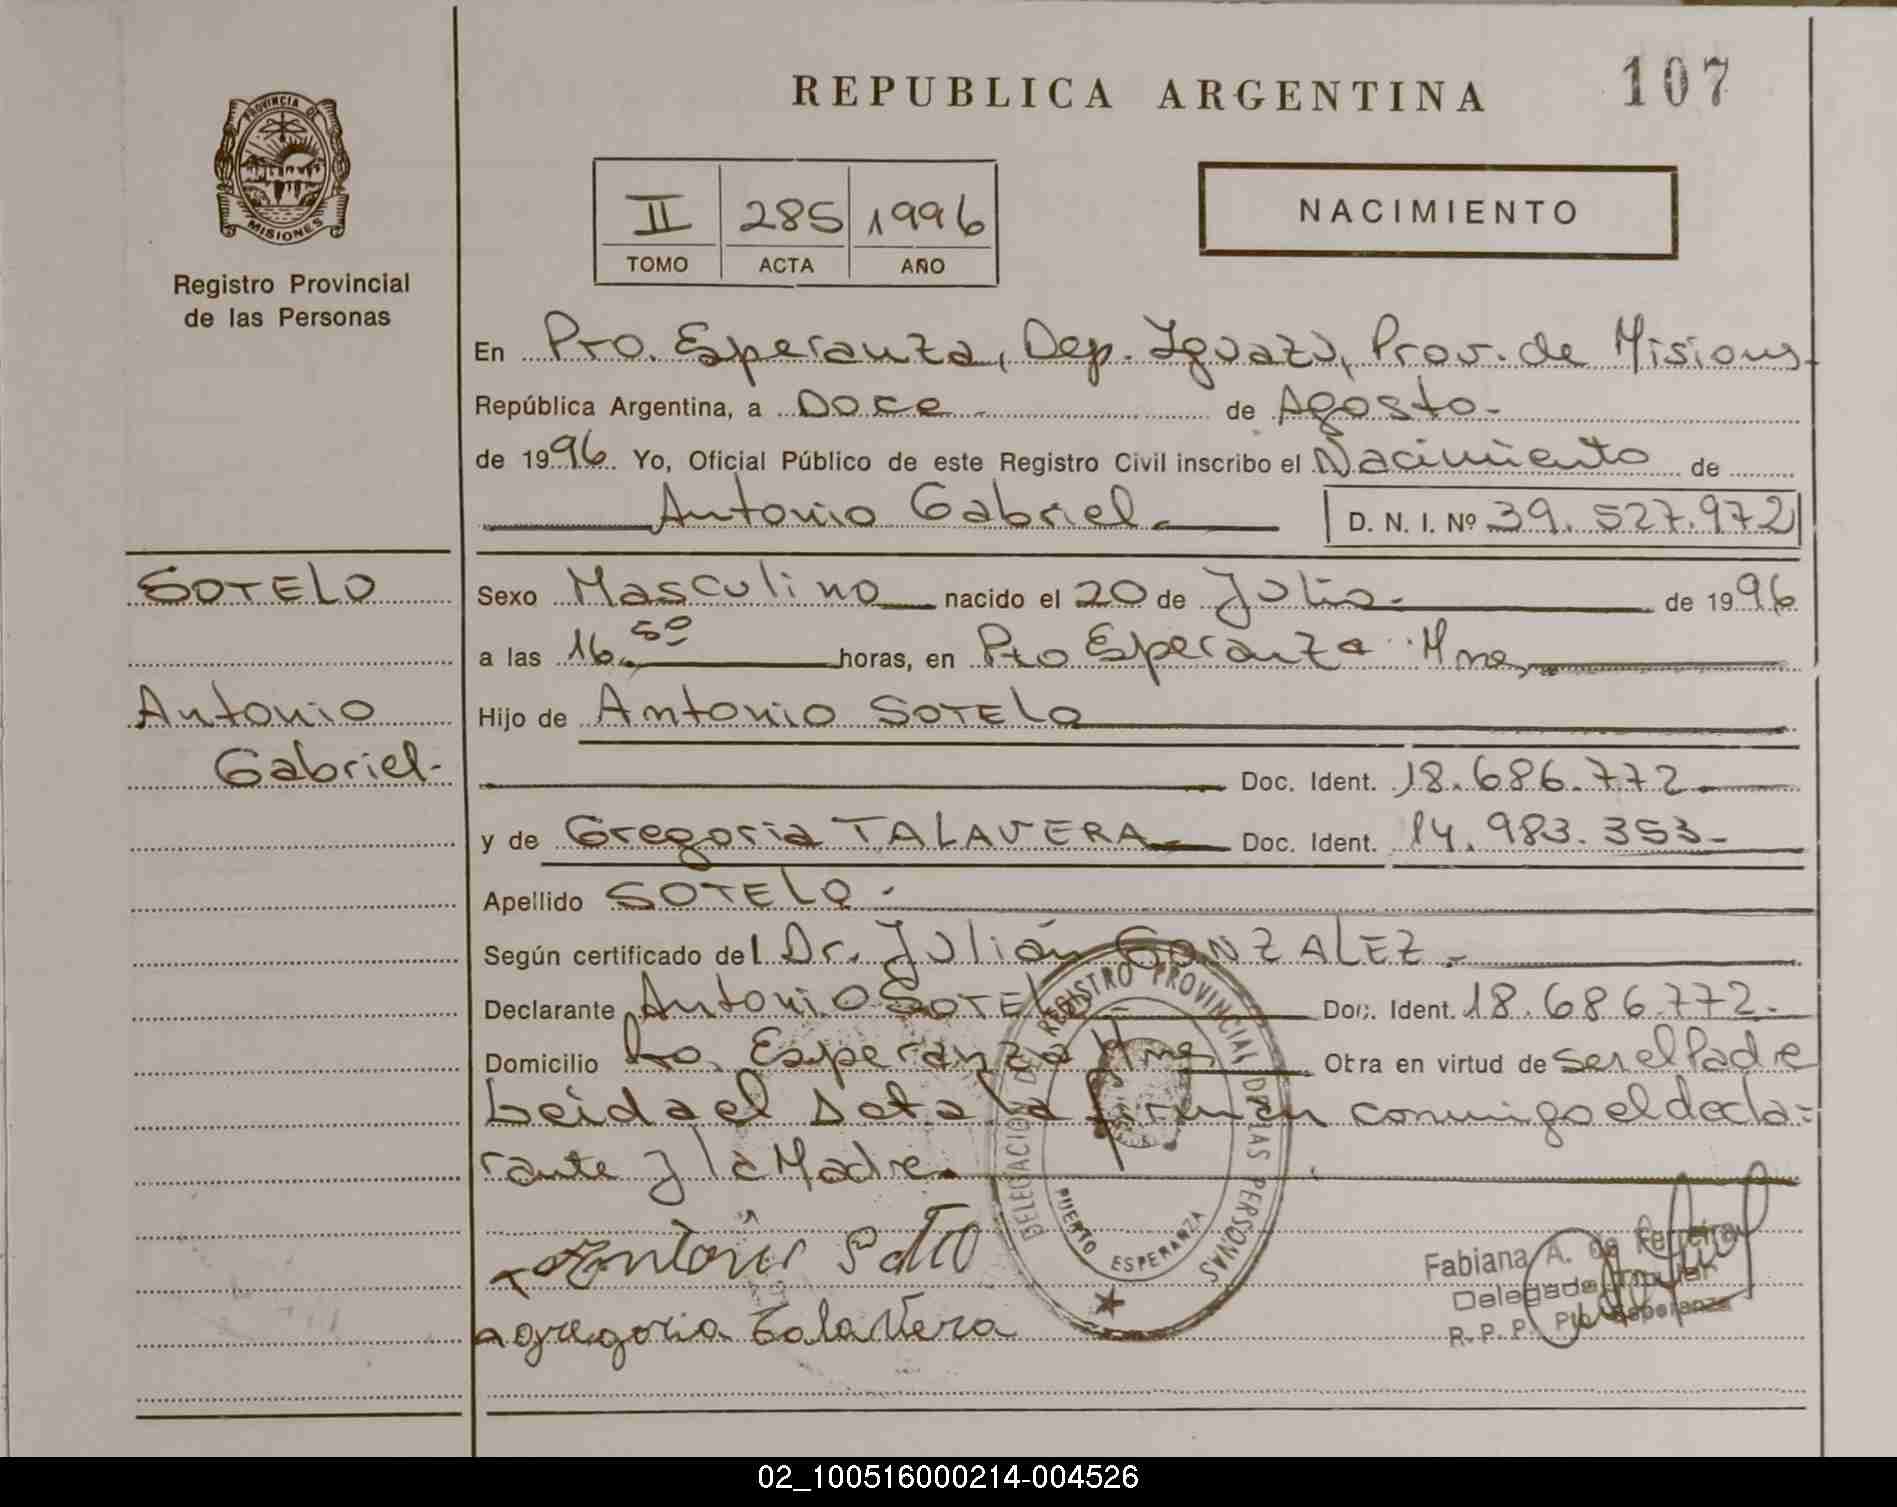 REPUBLICA ARGENTINA
107
PROVINCIA DE
MISIONES
Registro Provincial
de las Personas
II 285 1996
TOMO ACTA AÑO
NACIMIENTO
En Pto. Esperanza, Dep. Iguazú, Prov. de Misiones.
República Argentina, a Doce - de Agosto -
de 1996. Yo, Oficial Público de este Registro Civil inscribo el Nacimiento de
Antonio Gabriel. D. N. I. Nº 39.527.972
SOTELO
Antonio
Gabriel-
Sexo Masculino nacido el 20 de Julio. de 1996
a las 16.50 horas, en Pto Esperanza Mnes
Hijo de Antonio SOTELO
Doc. Ident. 18.686.772.
y de Gregoria TALAVERA Doc. Ident. 14.983.353-
Apellido SOTELO.-
Según certificado del Dr. Julián GONZALEZ.-
Declarante Antonio SOTELO- Doc. Ident. 18.686.772.-
Domicilio Pto. Esperanza Mnes Otra en virtud de ser el Padre
Leida el Acta la firman conmigo el decla=
rante y la Madre.
DELEGACION DEL REGISTRO PROVINCIAL DE LAS PERSONAS
PUERTO ESPERANZA
Antonio Sotelo
gregoria Talavera
Fabiana A. de Ferreira
Delegada Titular
R. P. P. Pto. Esperanza
02_100516000214-004526